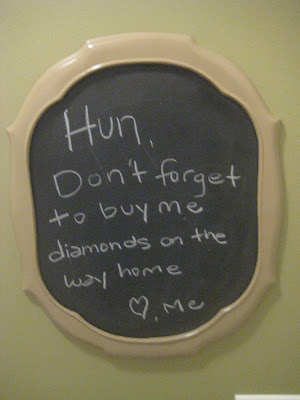 Hun,
Don't forget
to buy me
diamonds on the
way home
♡, Me